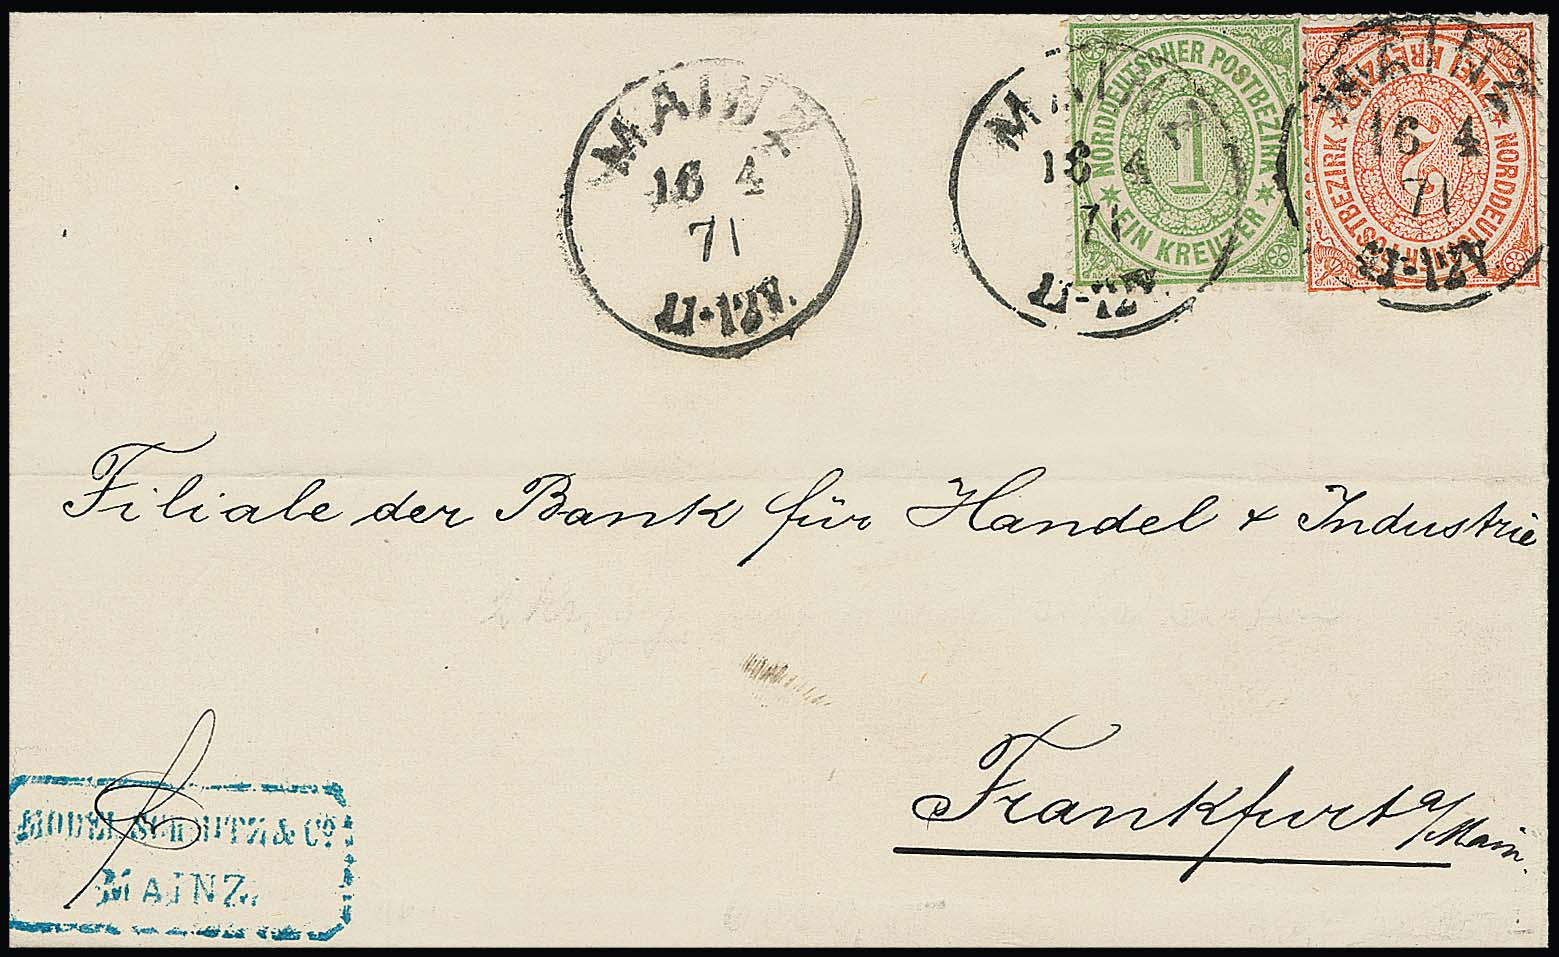 MAINZ
16 4
71
11-12V.
MAINZ
16 4
71
11-12V.
NORDDEUTSCHER POSTBEZIRK
1
EIN KREUZER
MAINZ
16 4
71
11-12V
NORDDEUTSCHER POSTBEZIRK
2
ZWEI KREUZER
Filiale der Bank für Handel & Industrie
Frankfurt a/Main.
& Co.
MAINZ.